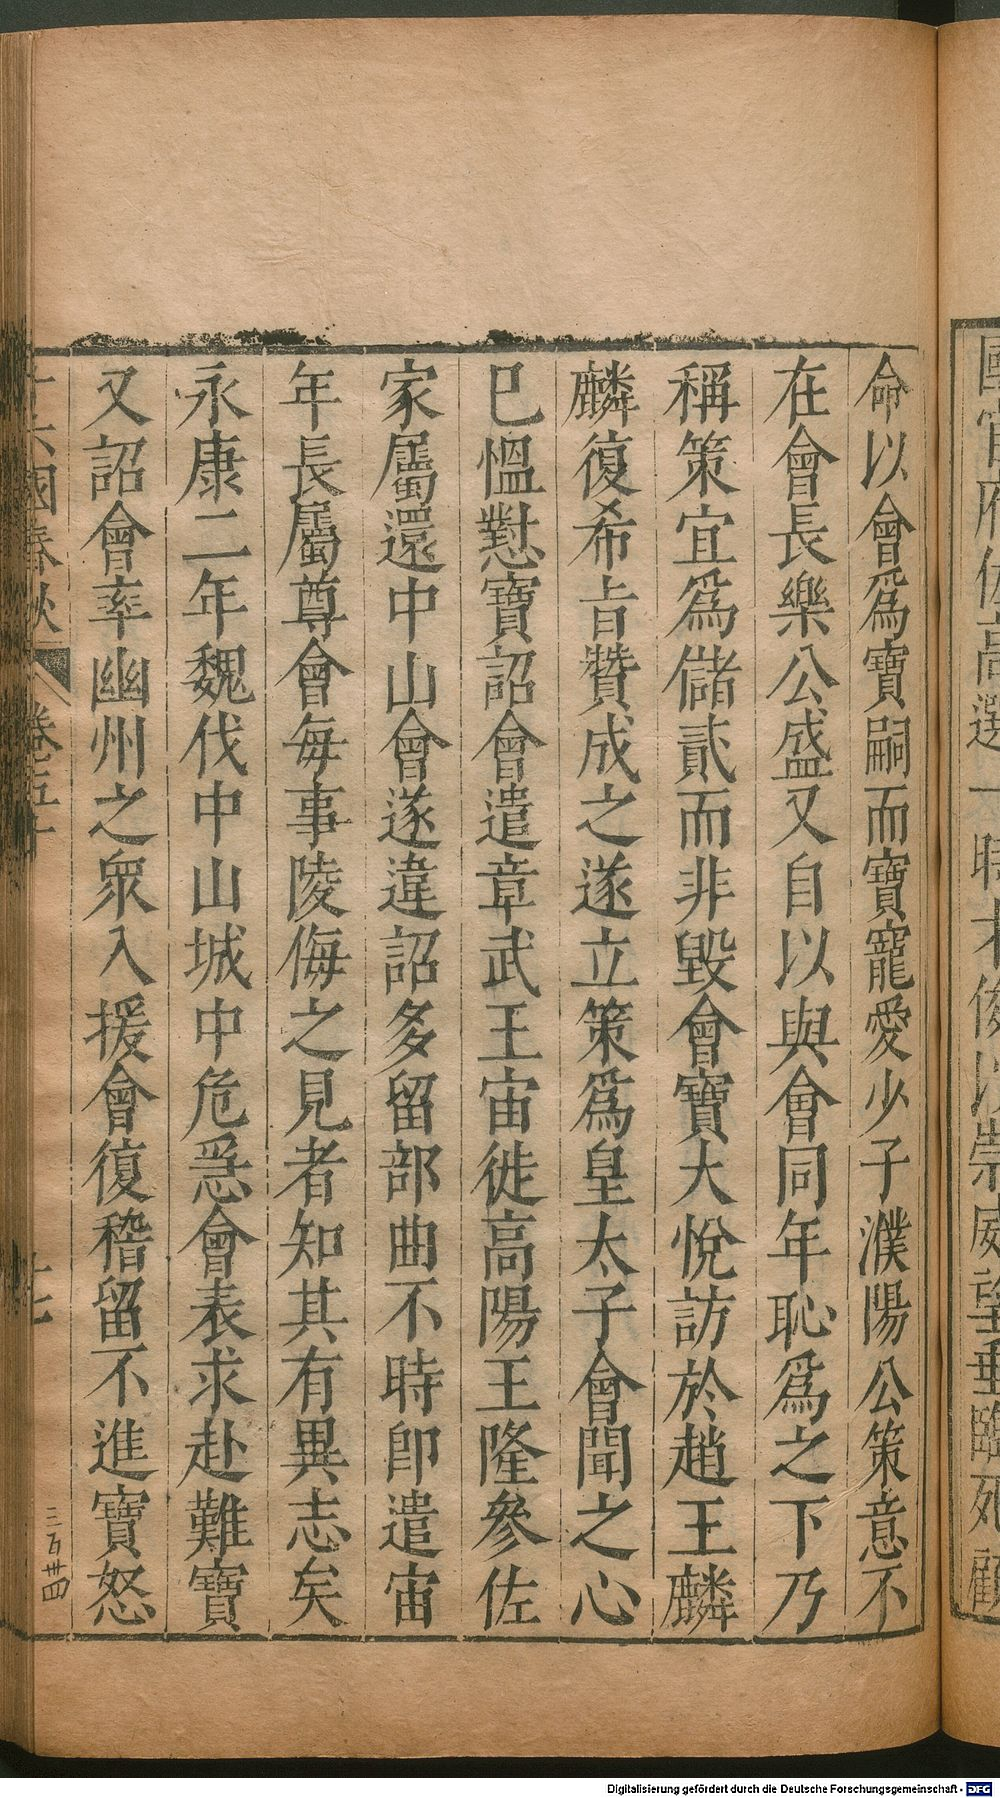 國官府佐高選一時才俊以崇威望垂臨死顧
命以會爲寶嗣而寶寵愛少子濮陽公策意不
在會長樂公盛又自以與會同年恥爲之下乃
稱策宜爲儲貳而非毀會寶大悅訪於趙王麟
麟復希旨贊成之遂立策爲皇太子會聞之心
巳慍懟寶詔會遣章武王宙徙高陽王隆參佐
家屬還中山會遂違詔多留部曲不時卽遣宙
年長屬尊會每事陵侮之見者知其有異志矣
永康二年魏伐中山城中危急會表求赴難寶
又詔會率幽州之眾入援會復稽留不進寶怒
十六國春秋 卷五十 十七
三百卅四
Digitalisierung gefördert durch die Deutsche Forschungsgemeinschaft - DFG